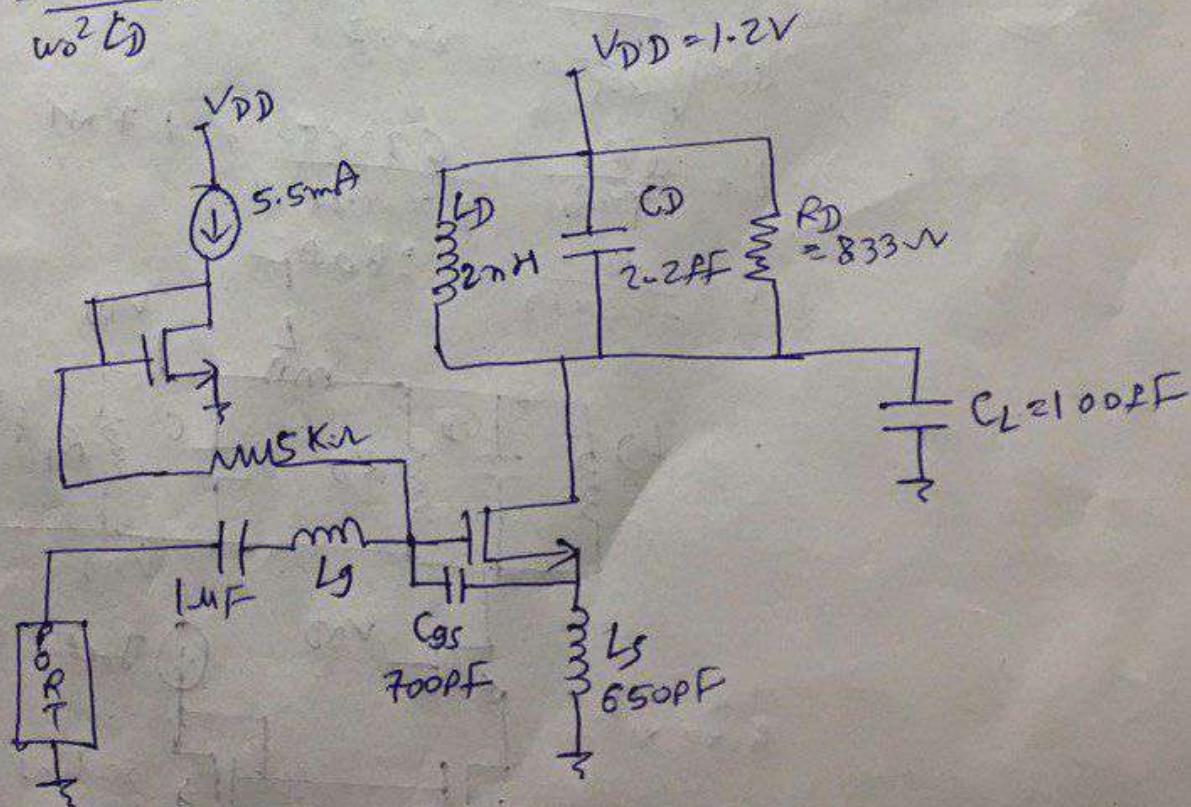 ω0² LD
VDD = 1.2V
VDD
5.5mA
LD
2nH
CD
2.2fF
RD
= 833Ω
CL = 100fF
5KΩ
1μF
Lg
Cgs
700pF
Ls
650pF
PORT